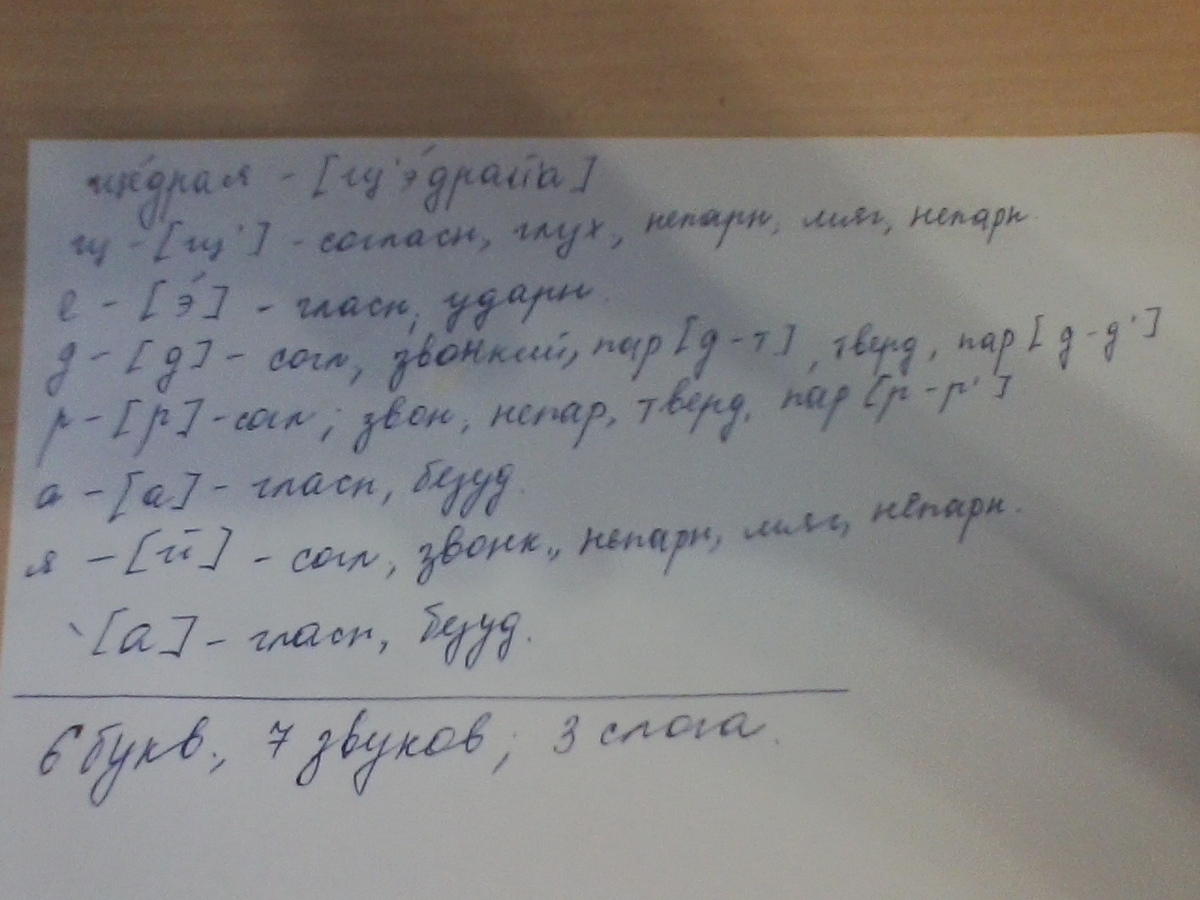 ще́драя - [щ'э́драйа]
щ - [щ'] - согласн, глух, непарн, мяг, непарн.
е - [э́] - гласн, ударн.
д - [д] - согл, звонкий, пар [д-т], тверд, пар [д-д']
р - [р] - согл; звон, непар, тверд, пар [р-р']
а - [а] - гласн, безуд.
я - [й] - согл, звонк., непарн, мяг, непарн.
[а] - гласн, безуд.
6 букв; 7 звуков; 3 слога.